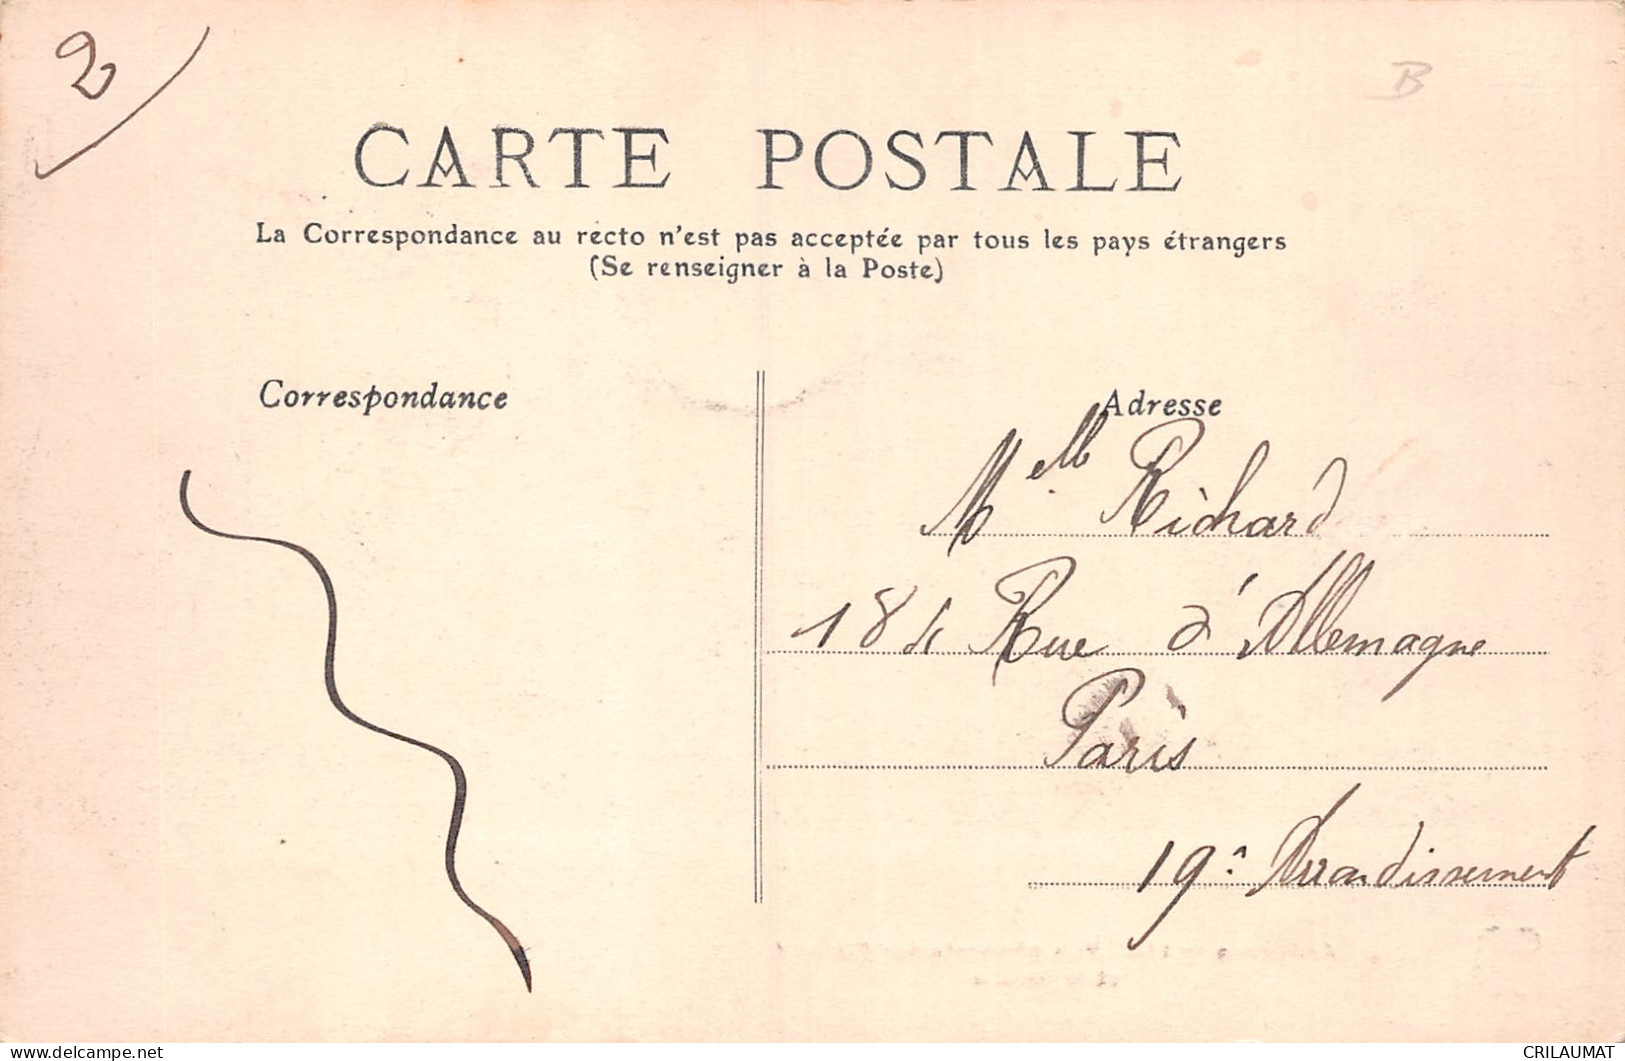 2
B
CARTE POSTALE
La Correspondance au recto n'est pas acceptée par tous les pays étrangers
(Se renseigner à la Poste)
Correspondance
Adresse
Melle Richard
184 Rue d'Allemagne
Paris
19e Arrondissement
delcampe.net
CRILAUMAT